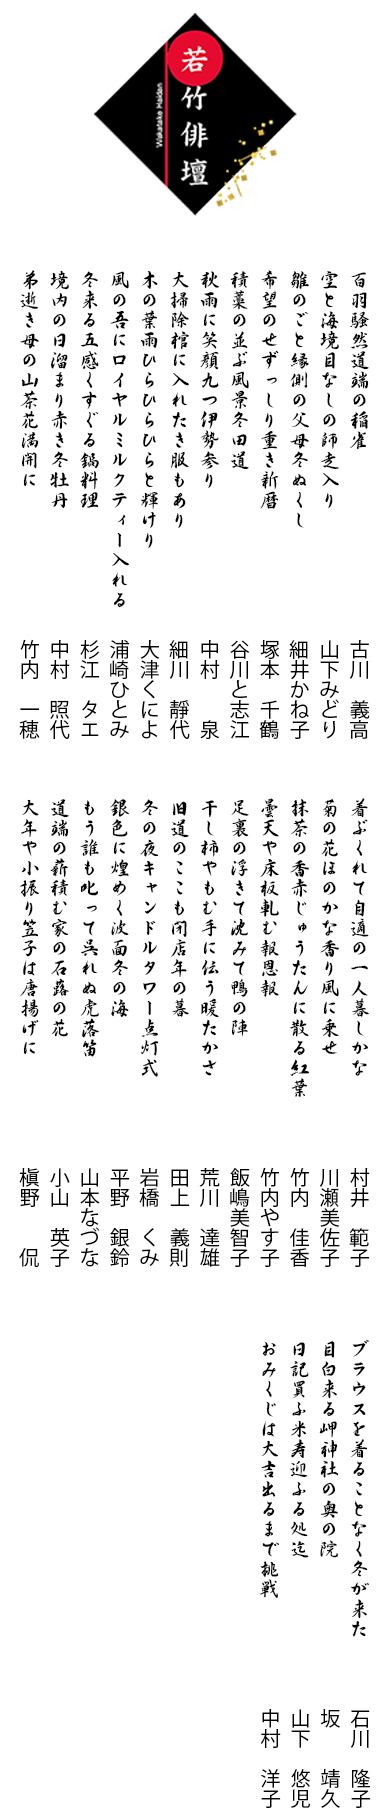 若竹俳壇
Wakatake Haidan
百羽騒然道端の稲雀
古川 義高
空と海境目なしの師走入り
山下みどり
雛のごと縁側の父母冬ぬくし
細井かね子
希望のせずっしり重き新暦
塚本 千鶴
積藁の並ぶ風景冬田道
谷川と志江
秋雨に笑顔九つ伊勢参り
中村 泉
大掃除棺に入れたき服もあり
細川 靜代
木の葉雨ひらひらひらと輝けり
大津くによ
風の吾にロイヤルミルクティー入れる
浦崎ひとみ
冬来る五感くすぐる鍋料理
杉江 タエ
境内の日溜まり赤き冬牡丹
中村 照代
弟逝き母の山茶花満開に
竹内 一穂
着ぶくれて自適の一人暮しかな
村井 範子
菊の花ほのかな香り風に乗せ
川瀬美佐子
抹茶の香赤じゅうたんに散る紅葉
竹内 佳香
曇天や床板軋む報恩報
竹内やす子
足裏の浮きて沈みて鴨の陣
飯嶋美智子
干し柿やもむ手に伝う暖たかさ
荒川 達雄
旧道のここも閉店年の暮
田上 義則
冬の夜キャンドルタワー点灯式
岩橋 くみ
銀色に煌めく波面冬の海
平野 銀鈴
もう誰も叱って呉れぬ虎落笛
山本なづな
道端の薪積む家の石蕗の花
小山 英子
大年や小振り笠子は唐揚げに
槇野 侃
ブラウスを着ることなく冬が来た
石川 隆子
目白来る岬神社の奥の院
坂 靖久
日記買ふ米寿迎ふる処迄
山下 悠児
おみくじは大吉出るまで挑戦
中村 洋子